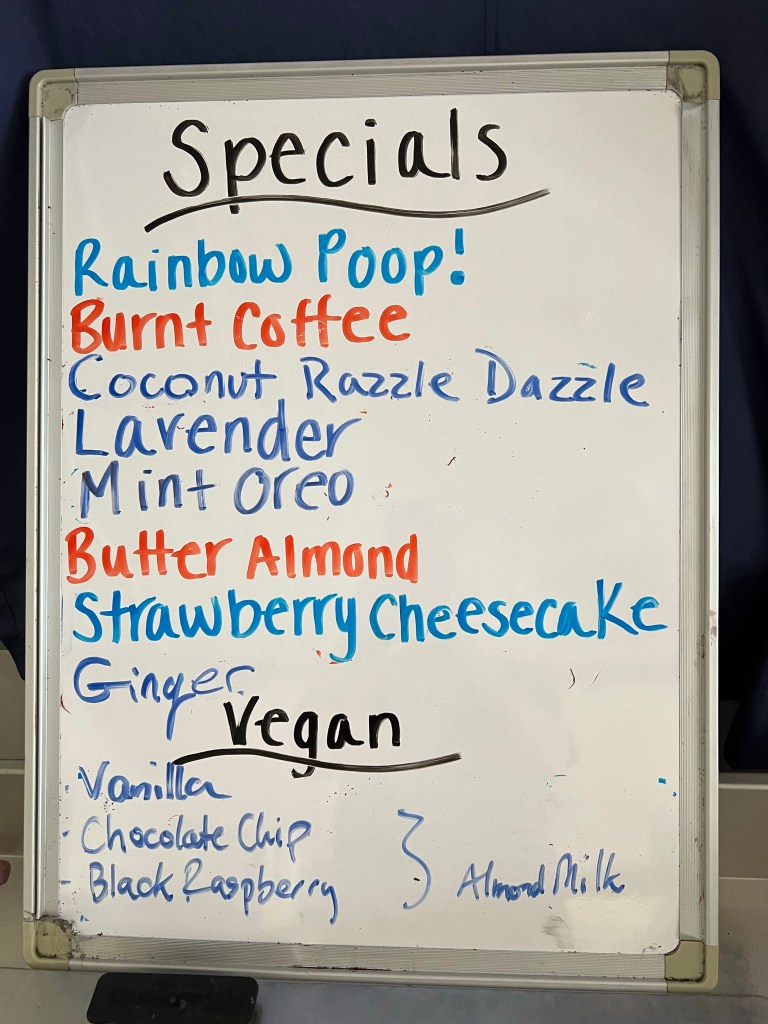 Specials
Rainbow Poop!
Burnt Coffee
Coconut Razzle Dazzle
Lavender
Mint Oreo
Butter Almond
Strawberry Cheesecake
Ginger
Vegan
- Vanilla
- Chocolate Chip
- Black Raspberry } Almond Milk